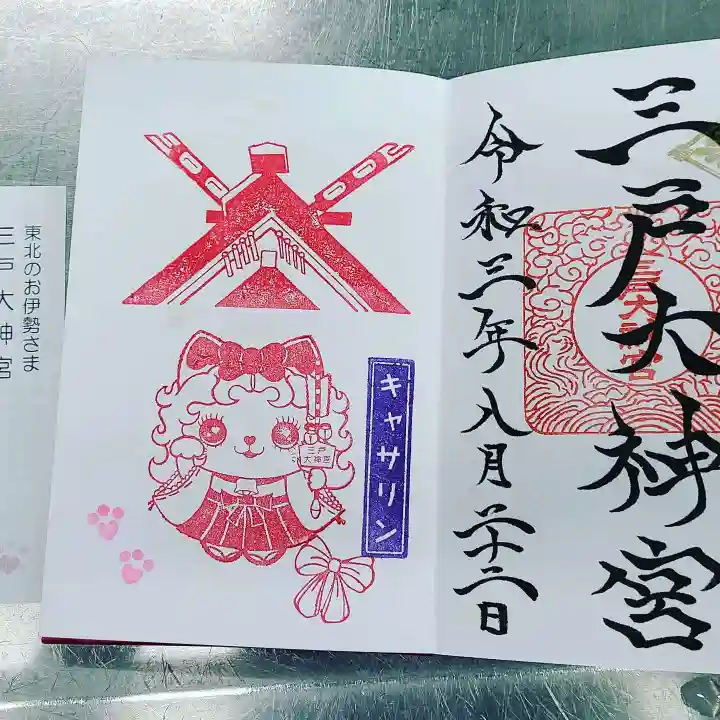 三戸大神宮
三戸大神宮
令和三年八月二十二日
キャサリン
三戸
大神宮
東北のお伊勢さま
三戸大神宮